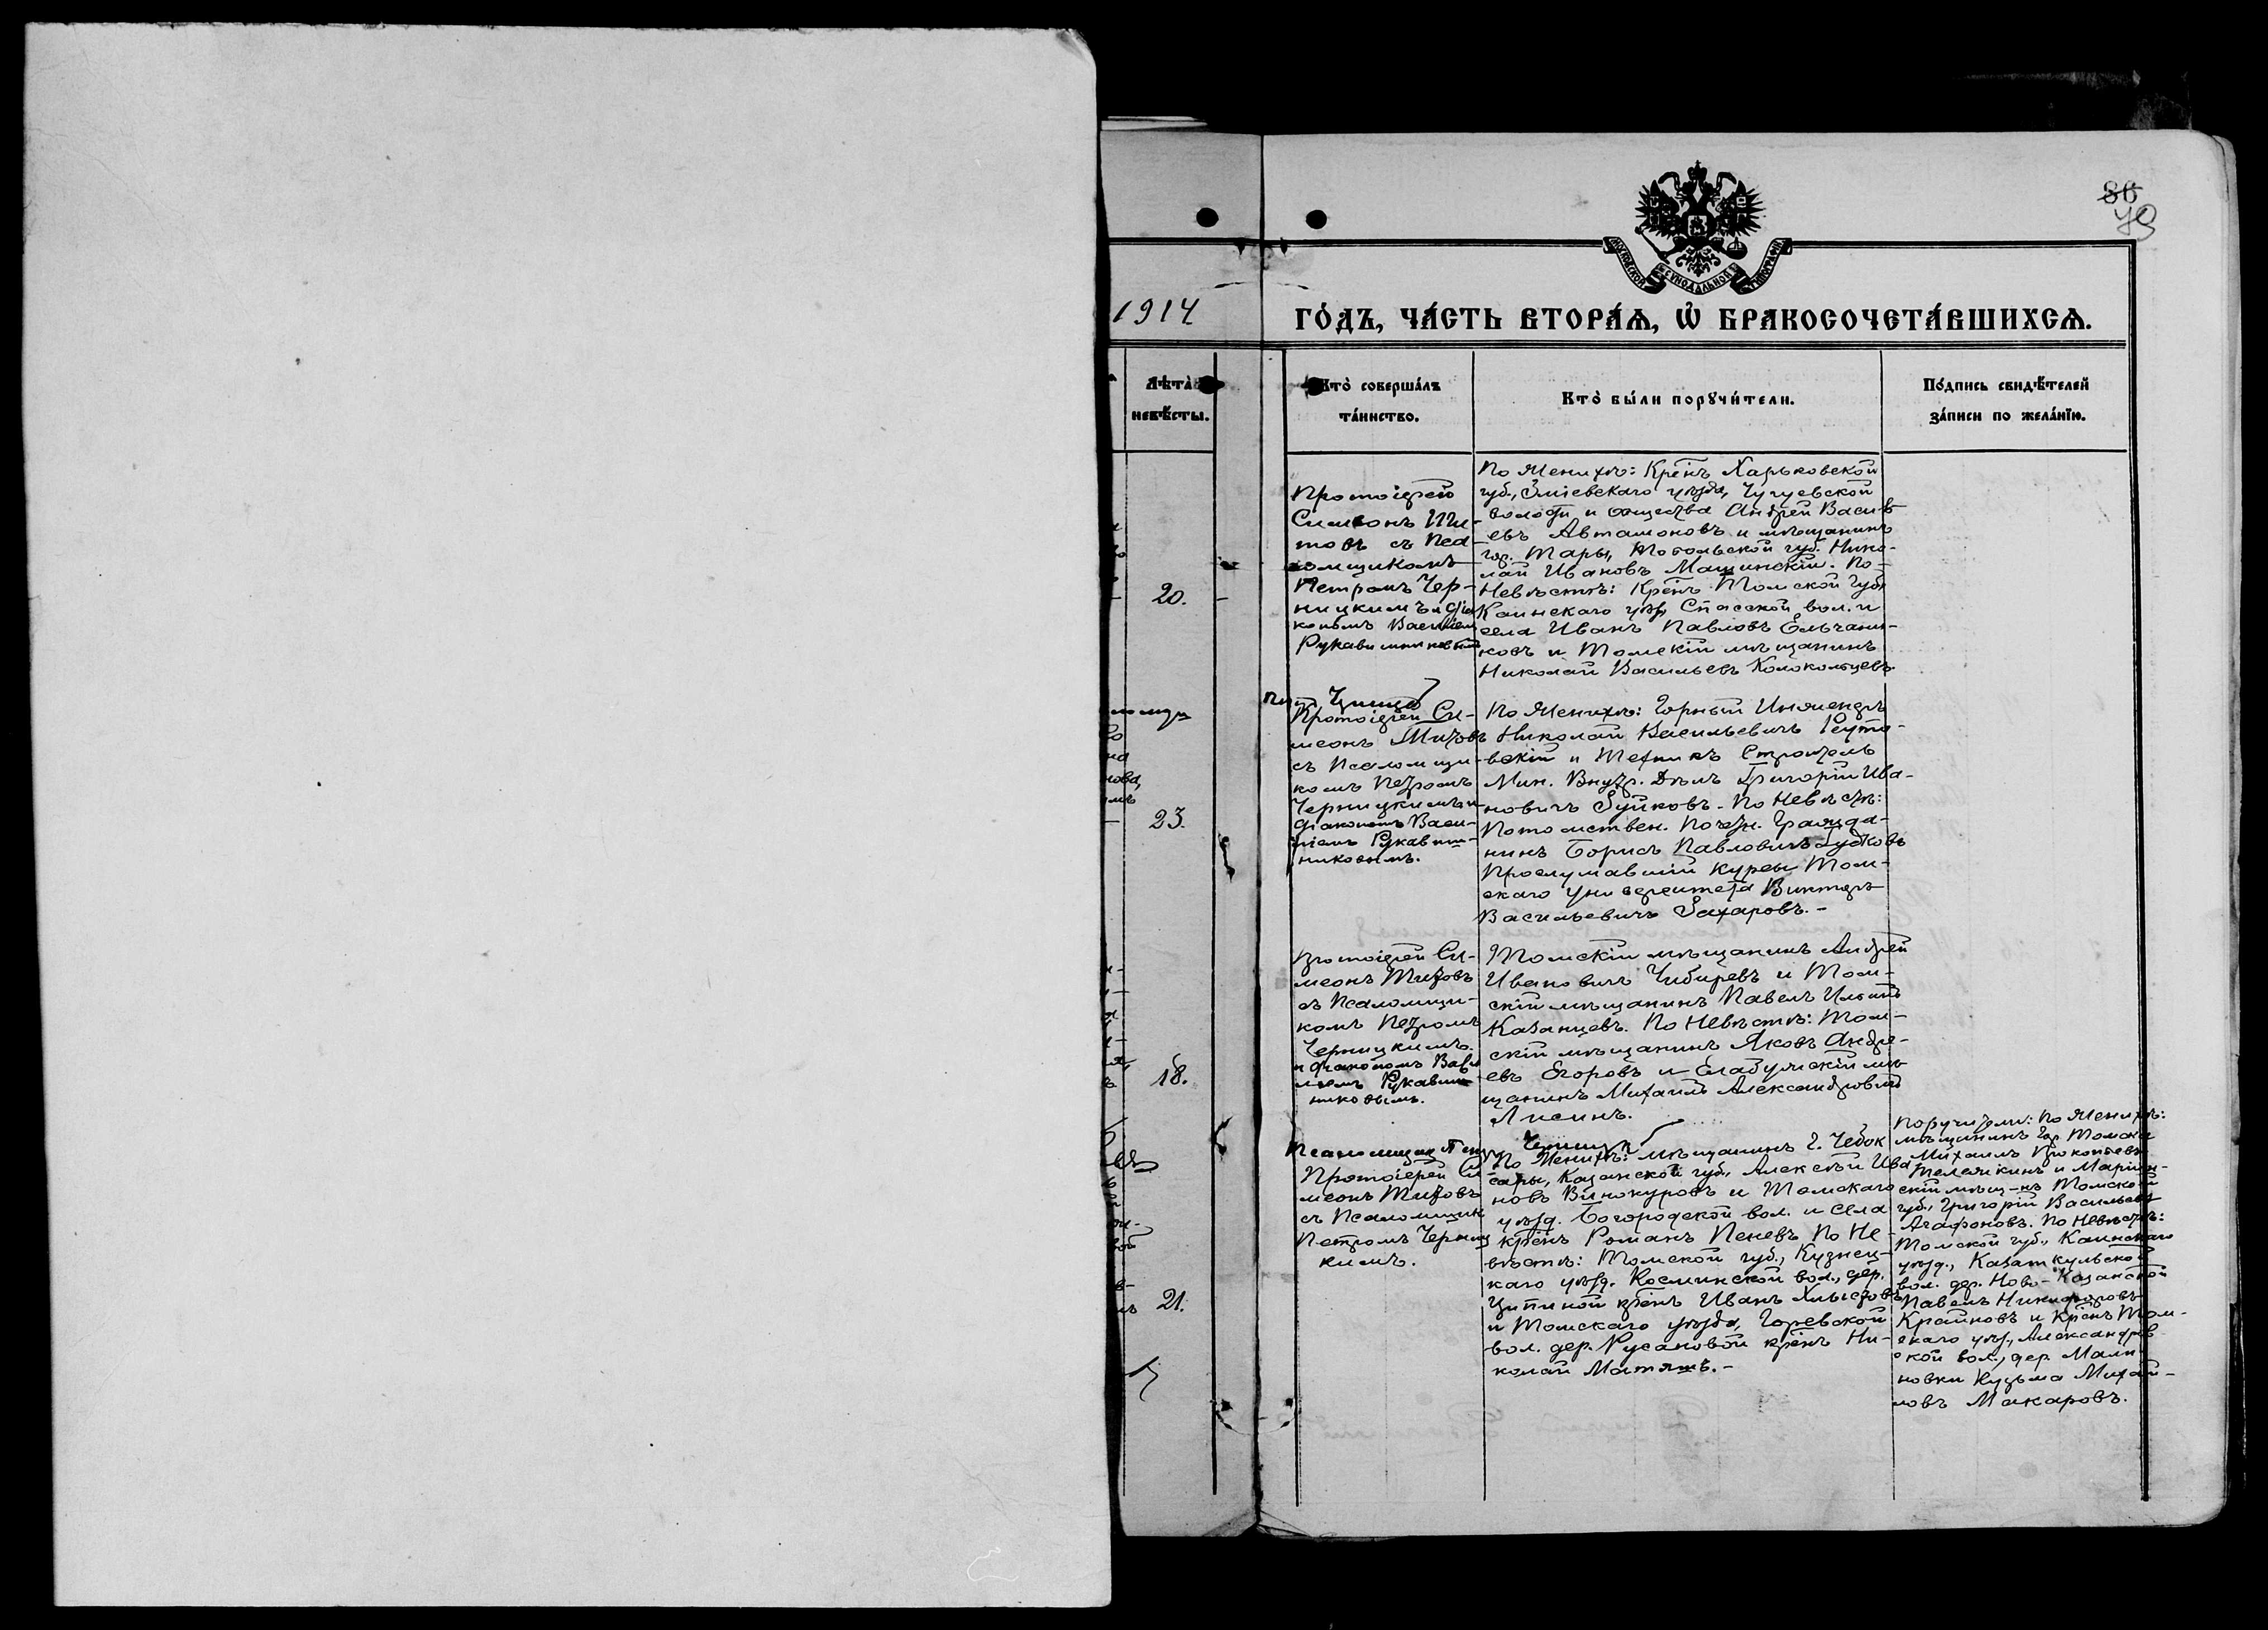 86
79
МОСКОВСКОЙ СѴНОДАЛЬНОЙ ТИПОГРАФІИ
1914
ГО́ДЪ, ЧА́СТЬ ВТОРА́Ѧ, Ѽ БРАКОСОЧЕТА́ВШИХСѦ.
Лѣта̀
невѣ́сты.
Кто̀ соверша́лъ
та́инство.
Кто̀ бы́ли порꙋчи́тели.
По́дпись свидѣ́телей
за́писи по жела́нїю.
20.
Протоіерей
Симеонъ Ти-
товъ съ Пса-
ломщикомъ
Петромъ Чер-
ницкимъ и діа
кономъ Василіем
Рукавишниковым
По Женихѣ: Кр̃нъ Харьковской
губ., Зміевскаго уѣзда, Чугуевской
волости и общества Андрей Василь
евъ Автамоновъ и мѣщанинъ
гор. Тары, Тобольской губ. Нико-
лай Ивановъ Машинскій. По-
Невѣстѣ: Кр̃нъ Томской Губ.
Каинскаго уѣзд. Спасской вол. и
села Иванъ Павловъ Ельчани-
ковъ и Томскій мѣщанинъ
Николай Васильевъ Колокольцевъ
23.
Протоіерей Си-
меонъ Титовъ
съ Псаломщи-
комъ Петромъ
Черницкимъ и
діакономъ Васи-
ліемъ Рукавиш-
никовымъ.
По Женихѣ: Горный Инженеръ
Николай Васильевичъ Реуто-
вскій и Техникъ Строитель
Мин. Внутр. Дѣлъ Григорій Ива-
новичъ Зуйковъ. По Невѣстѣ:
Потомствен. Почетн. Гражда-
нинъ Борисъ Павловичъ Гудковъ
Прослушавшій курсы Том-
скаго университета Викторъ
Васильевичъ Захаровъ. -
18.
Протоіерей Си-
меонъ Титовъ
съ Псаломщи-
комъ Петромъ
Черницкимъ.
и діакономъ Васи
ліемъ Рукавиш-
никовымъ.
Томскій мѣщанинъ Андрей
Ивановичъ Чибиревъ и Том-
скій мѣщанинъ Павелъ Ильинъ
Казанцевъ. По Невѣстѣ: Том-
скій мѣщанинъ Яковъ Андре-
евъ Егоровъ и Елабужскій мѣ-
щанинъ Михаилъ Александровичъ
Лисинъ.
21.
Псаломщик Петр
Протоіерей Си
меонъ Титовъ
съ Псаломщик
Петромъ Черниц
кимъ.
По Женихѣ: мѣщанинъ г. Чебок
сары, Казанской губ., Алексѣй Ива
новъ Винокуровъ и Томскаго
уѣзд. Богородской вол. и села
кр̃нъ Романъ Пеневъ По Не-
вѣстѣ: Томской губ., Кузнец-
каго уѣзд. Косминской вол., дер.
Цитиной кр̃нъ Иванъ Хлыстовъ
и Томскаго уѣзда, Горевской
вол. дер. Русановой кр̃нъ Ни-
колай Матяшъ. -
Поручители: По Женихѣ:
мѣщанинъ гор. Томска
Михаилъ Прокопьевъ
Тележкинъ и Маріин-
скій мѣщ-нъ Томской
губ., Григорій Васильевъ
Агафоновъ. По Невѣстѣ:
Томской губ., Каинскаго
уѣзд., Казаткульской
вол. дер. Ново-Казанской
Павелъ Никифоровъ
Крайновъ и Кр̃нъ Том-
скаго уѣзд., Александров
ской вол., дер. Мали
новки Кузьма Михай-
ловъ Макаровъ.